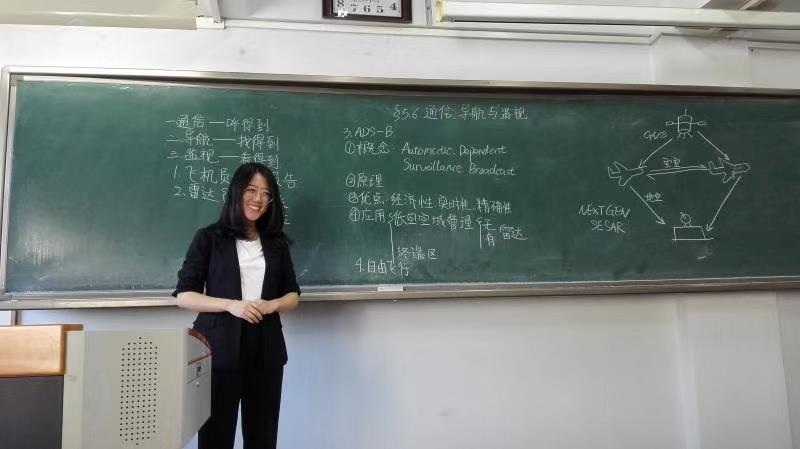 8 7 6 5 4
§5.6 通信、导航与监视
一.通信——呼得到
二.导航——找得到
三.监视——看得到
1.飞机员 告
2.雷达
3.ADS-B
①概念: Automatic Dependent
Surveillance Broadcast
②原理
③优点: 经济性、实时性、精确性
④应用 低空空域管理 无
有 雷达
终端区
4.自由飞行
GNSS
空空
地空
NEXTGEN
SESAR